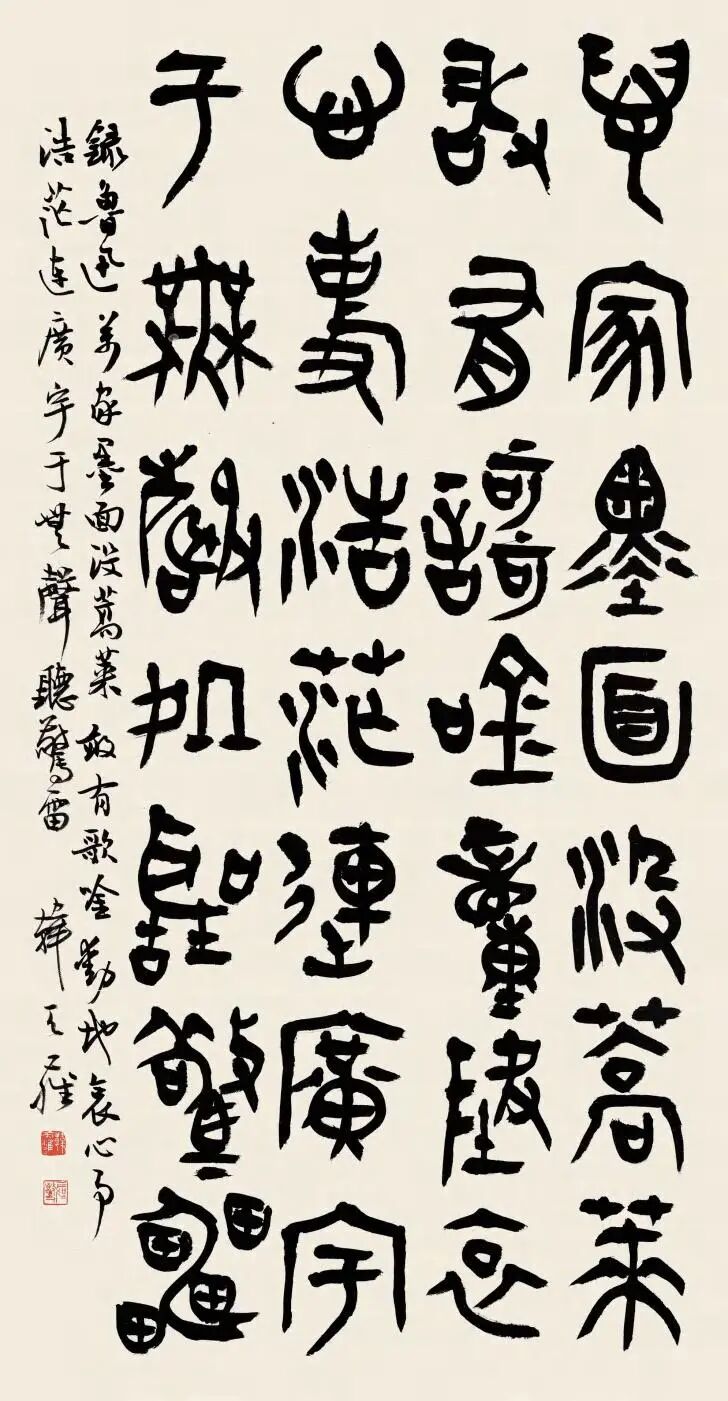 萬家墨面沒蒿萊
敢有謌唫動地哀
心事浩茫連廣宇
于無聲処聽驚雷
録魯迅萬家墨面没蒿萊敢有歌唫動地哀心事
浩茫連廣宇于無聲聽驚雷 韓天雍